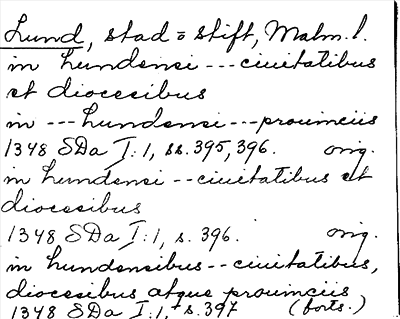 Lund, stad = stift, Malm. l.
in lundensi --- ciuitatibus
et diocesibus
in --- lundensi --- prouinciis
1348 SDa I:1, ss. 395, 396. orig.
in lundensi -- ciuitatibus et
diocesibus
1348 SDa I:1, s. 396. orig.
in lundensibus -- ciuitatibus,
diocesibus atque prouinciis
1348 SDa I:1, s. 397 (forts.)